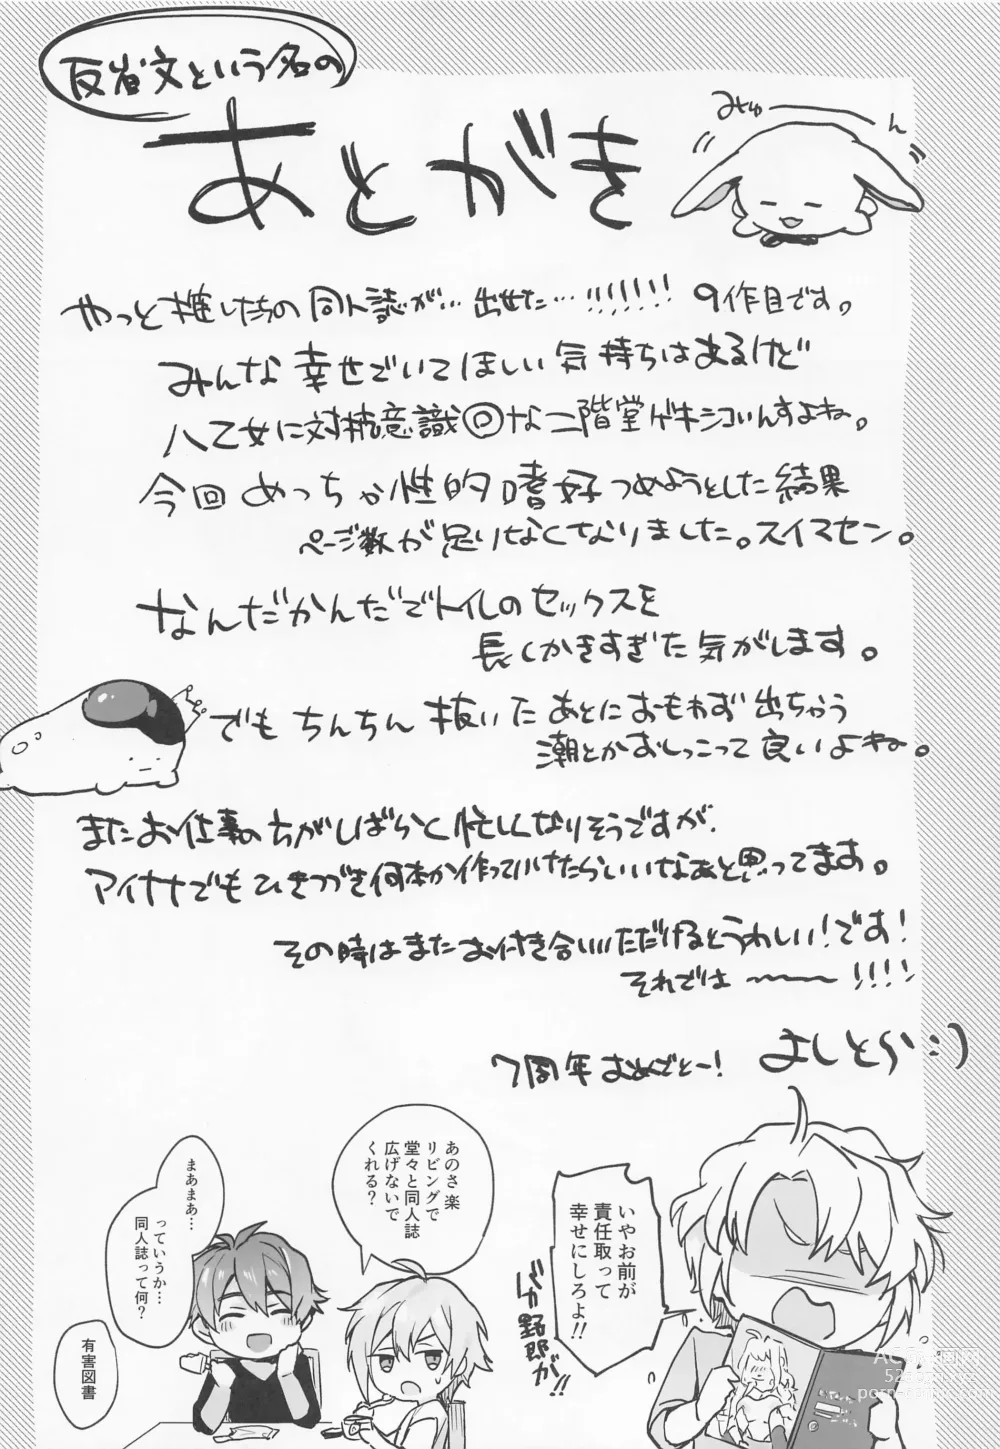 反省文という名の
あとがき
みゅーーん
やっと推したちの同人誌が…出せた…!!!!!!! 9作目です。
みんな幸せでいてほしい気持ちはあるけど
八乙女に対抗意識◎な二階堂ゲキシコいんすよね。
今回めっちゃ性的嗜好つめようとした結果
ページ数が足りなくなりました。スイマセン。
なんだかんだでトイレのセックスを
長くかきすぎた気がします。
でもちんちん抜いたあとにおもわず出ちゃう
潮とかおしっこって良いよね。
またお仕事のちがしばらく忙しくなりそうですが、
アイナナでもひきつづき何本か作っていけたらいいなぁと思ってます。
その時はまたお付き合いいただけるとうれしい!です!
それでは〜〜〜!!!!
7周年おめでとー!
よしとら:)
いやお前が
責任取って
幸せにしろよ!!
バカ野郎が!!
あのさ楽
リビングで
堂々と同人誌
広げないで
くれる?
まあまあ…
っていうか…
同人誌って何?
有害図書